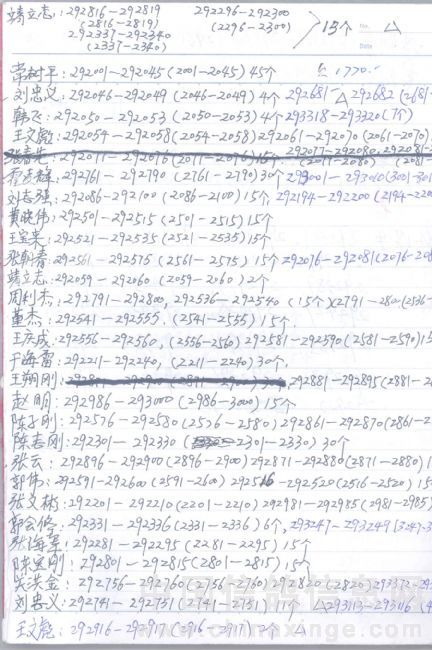 靖立志: 292816-292819 292296-292300
(2816-2819) (2296-2300) 15个 No. △
292337-292340
(2337-2340) Date
常树平: 292001-292045 (2001-2045) 45个
刘忠义: 292046-292049 (2046-2049) 4个 292681- △ 292682 (2681-
韩飞: 292050-292053 (2050-2053) 4个 293318-293320 (7个)
王文彪: 292054-292058 (2054-2058) 292061-292070 (2061-2070)
292077-292080
292761-292790 (2761-2790) 30个 293001-293010 (3001-301
刘志强: 292086-292100 (2086-2100) 15个 292194-292200 (2194-220
黄晓伟: 292501-292515 (2501-2515) 15个
王宝来: 292521-292535 (2521-2535) 15个
292561-292575 (2561-2575) 15个 292076-292081 (2076-208
靖立志: 292059-292060 (2059-2060) 2个
周利杰: 292791-292800, 292536-292540 (15个) (2791-2800) (2536-
董杰: 292541-292555. (2541-2555) 15个.
王庆成: 292556-292560, (2556-2560) 292581-292590 (2581-2590) 15
于海雷: 292211-292240, (2211-2240) 30个.
王朝刚: 292881-292895 (2881-28
赵明: 292986-293000 (2986-3000) 15个
陈子刚: 292576-292580 (2576-2580) 292861-292870 (2861-2
陈志刚: 292301-292330 (2301-2330) 30个
张云: 292896-292900 (2896-2900) 292871-292880 (2871-2880) 1
郭伟: 292591-292600 (2591-2600) 292516-292520 (2516-2520) 15
张文彬: 292201-292210 (2201-2210) 292981-292985 (2981-2985)
郭会修: 292331-292336 (2331-2336) 6个, 293247-293249 (3247-3
张海军: 292281-292295 (2281-2295) 15个
陈宝刚: 292801-292815 (2801-2815) 15个
吴洪金: 292756-292760 (2756-2760) 292820 (2820) 293372-293
刘忠义: 292741-292751 (2741-2751) 11个 △ 293113-293116 (4
王文彪: 292916-292917 (2916-2917) 2个 △
www.chinaxinge.com